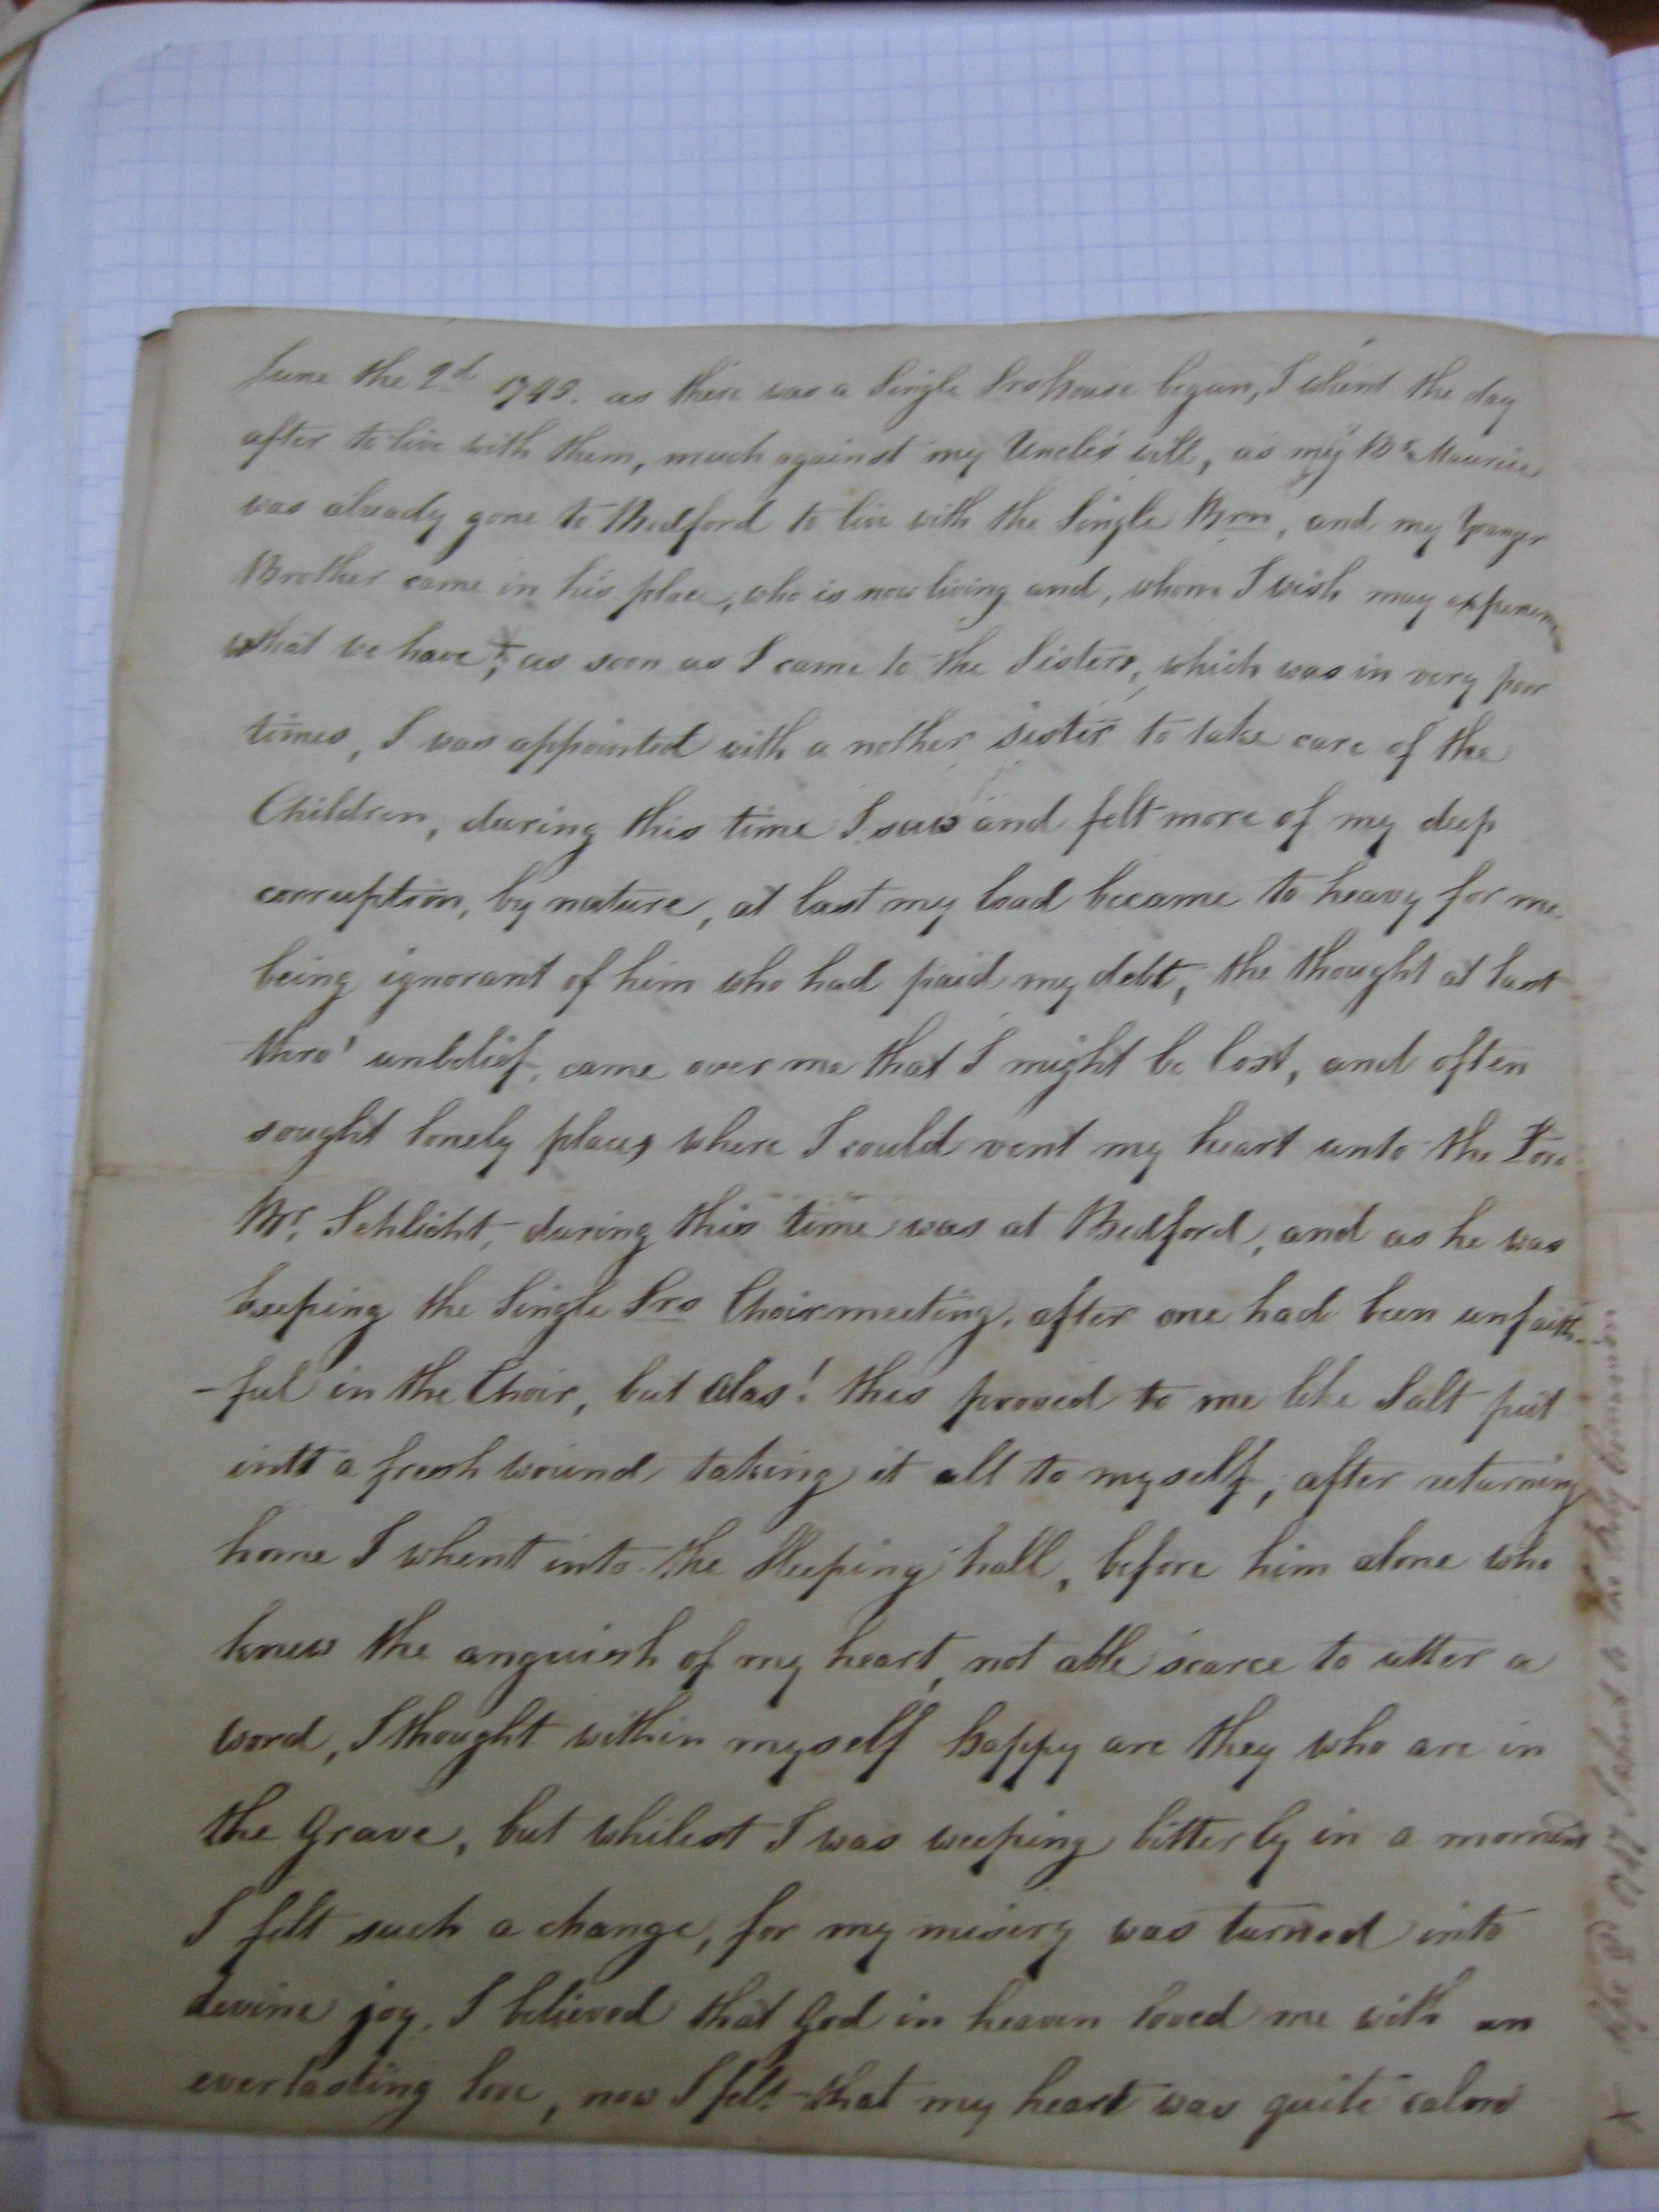 June the 2d 1745. as there was a Single Srs house begun, I whent the day
after to live with them, much against my Uncles will, as my Br. Maurice
was already gone to Bedford to live with the Single Brn, and my Younger
Brother came in his place, who is now living and, whom I wish may experience
what we have, * as soon as I came to the Sisters, which was in very poor
times, I was appointed with a nother sister to take care of the
Children, during this time I saw and felt more of my deep
corruption, by nature, at last my load became to heavy for me,
being ignorant of him who had paid my debt, the thought at last
thro' unbelief, came over me that I might be lost, and often
sought lonely places where I could vent my heart unto the Lord
Br. Schlicht, during this time was at Bedford, and as he was
keeping the Single Srs Choirmeeting, after one had been unfaith-
-ful in the Choir, but alas! this proved to me like Salt put
into a fresh wound taking it all to myself, after returning
home I whent into the Sleeping hall, before him alone who
knew the anguish of my heart, not able scarce to utter a
word, I thought within myself happy are they who are in
the Grave, but whilest I was weeping bitterly in a moment
I felt such a change, for my misery was turned into
devine joy, I believed that God in heaven loved me with an
everlasting love, now I felt that my heart was quite calm
I whent to the holy